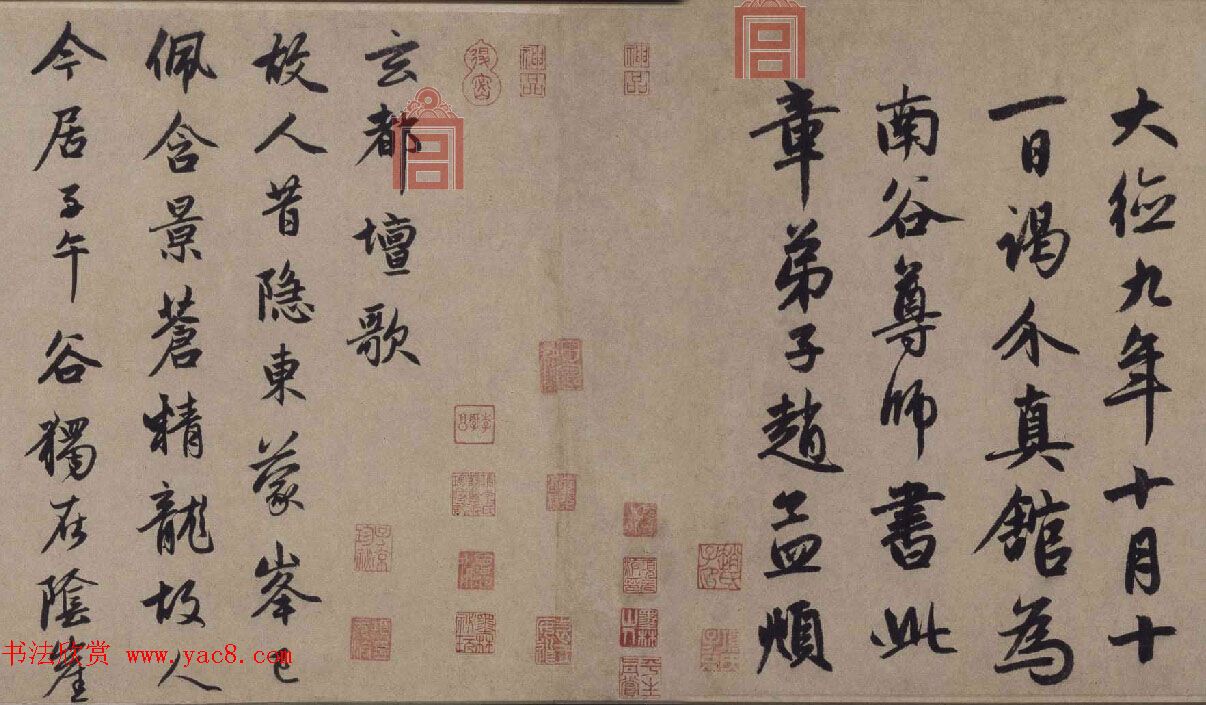 大德九年十月十
一日謁介真館為
南谷尊師書此
章弟子趙孟頫
趙氏子昂
神品
神品
玄都壇歌
故人昔隐東蒙峯已
佩含景蒼精龍故人
今居子午谷獨在陰崖
书法欣赏 www.yac8.com